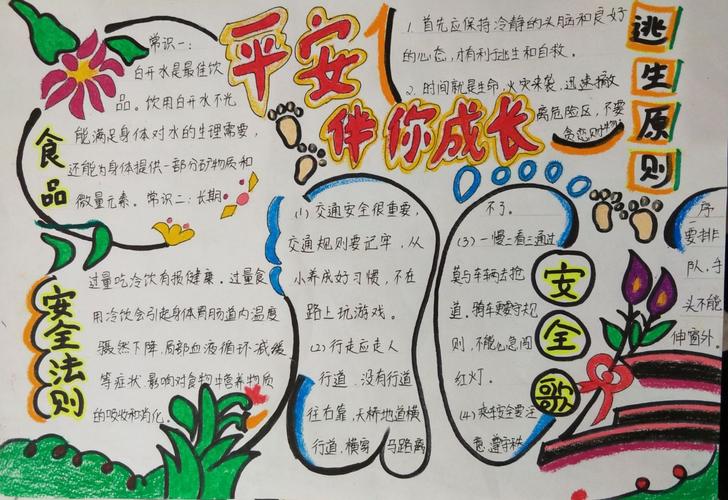 平安
伴你成长
食品
常识一:
白开水是最佳饮
品。饮用白开水不光
能满足身体对水的生理需要,
还能为身体提供一部分矿物质和
微量元素。常识二:长期
安全法则
过量吃冷饮有损健康。过量食
用冷饮会引起身体胃肠道内温度
骤然下降,局部血液循环减缓
等症状,影响对食物中营养物质
的吸收和消化。
逃生原则
1. 首先应保持冷静的头脑和良好
的心态,才有利于逃生和自救。
2. 时间就是生命,火灾来袭,迅速撤
离危险区,不要
贪恋财物
(1) 交通安全很重要,
交通规则要记牢,从
小养成好习惯,不在
路上玩游戏。
(2) 行走应走人
行道,没有行道
往右靠,天桥地道横
行道,横穿马路离
不了。
(3) 一慢二看三通过
莫与车辆去抢
道。骑车更要守规
则,不能心急闯
红灯。
(4) 乘车安全要注
意,遵守秩
序
要排
队,手
头不能
伸窗外。
安全歌